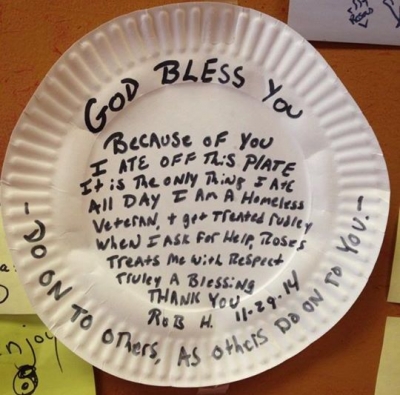 GOD BLESS YOU
BECAUSE OF YOU
I ATE OFF THIS PLATE
It is THE ONLY THING I ATE
ALL DAY I AM A HOMELESS
VETERAN, + get TREATED RUDLEY
WHEN I ASK FOR HELP, ROSES
TREATS ME WITH RESPECT
TRULEY A BLESSING
THANK YOU
ROB H. 11-29-14
- DO ON TO OTHERS, AS OTHERS DO ON TO YOU. -
enjoy